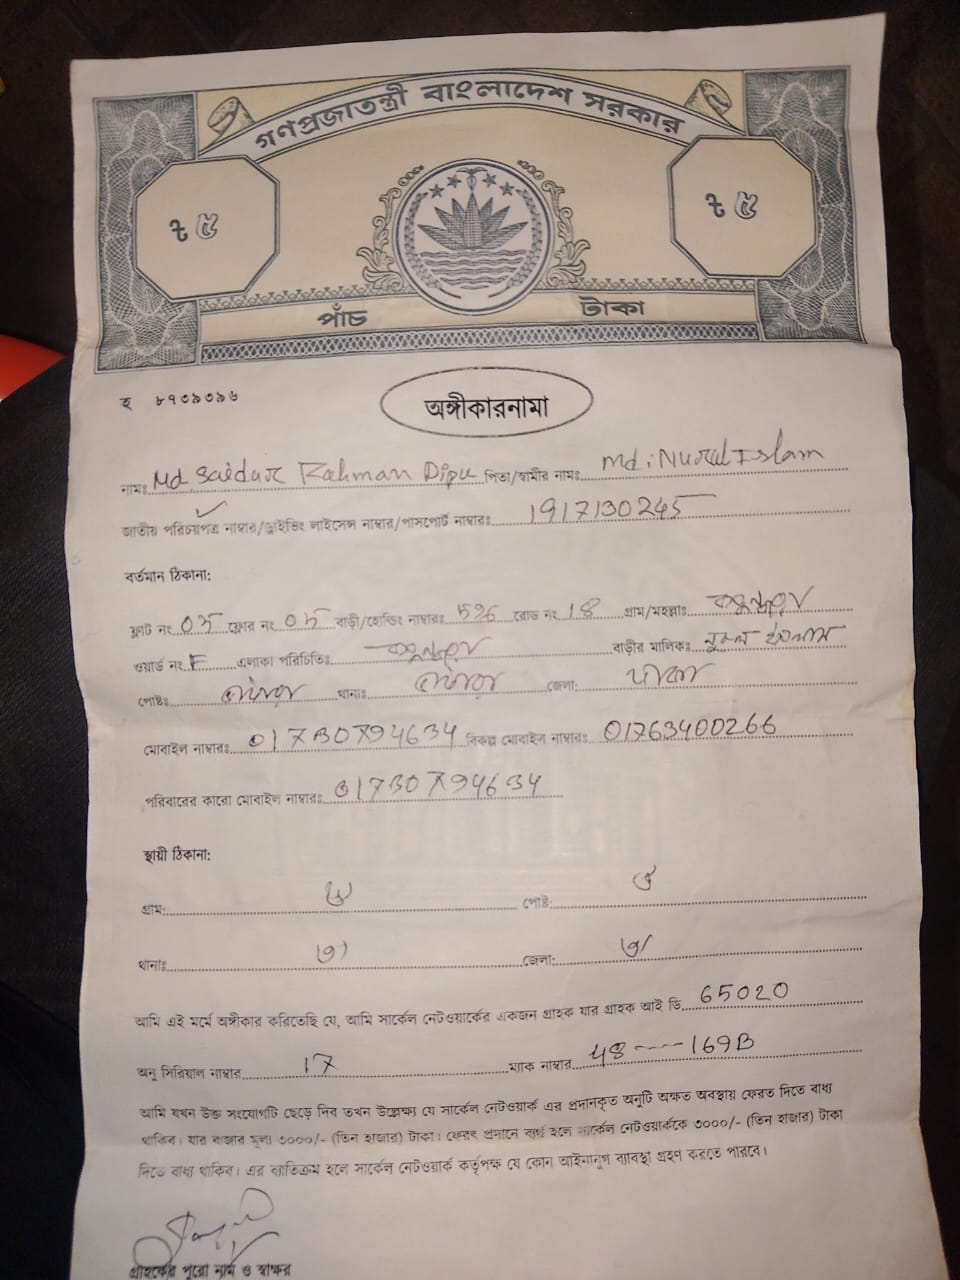 গণপ্রজাতন্ত্রী বাংলাদেশ সরকার
৳ ৫ ৳ ৫
পাঁচ টাকা
হ ৮৭৩৯৩৯৬
অঙ্গীকারনামা
নামঃ Md Saidur Rahman Dipu পিতা/স্বামীর নামঃ Md. Nurul Islam
জাতীয় পরিচয়পত্র নাম্বার/ড্রাইভিং লাইসেন্স নাম্বার/পাসপোর্ট নাম্বারঃ 1917130245
বর্তমান ঠিকানা:
ফ্লাট নং ফ্লোর নং বাড়ী/হোল্ডিং নাম্বারঃ রোড নং 18 গ্রাম/মহল্লাঃ
ওয়ার্ড নং F এলাকা পরিচিতিঃ বাড়ীর মালিকঃ নুরুল ইসলাম
পোষ্টঃ থানাঃ জেলা: ঢাকা
মোবাইল নাম্বারঃ 01730794634 বিকল্প মোবাইল নাম্বারঃ 01763400266
পরিবারের কারো মোবাইল নাম্বারঃ 01730794634
স্থায়ী ঠিকানা:
গ্রাম: ঐ পোষ্ট: ঐ
থানাঃ ঐ জেলা: ঐ
আমি এই মর্মে অঙ্গীকার করিতেছি যে, আমি সার্কেল নেটওয়ার্কের একজন গ্রাহক যার গ্রাহক আই ডি 65020
অনু সিরিয়াল নাম্বার 17 ম্যাক নাম্বার 48 ---- 169B
আমি যখন উক্ত সংযোগটি ছেড়ে দিব তখন উল্লেক্ষ্য যে সার্কেল নেটওয়ার্ক এর প্রদানকৃত অনুটি অক্ষত অবস্থায় ফেরত দিতে বাধ্য
থাকিব। যার বাজার মূল্য ৩০০০/- (তিন হাজার) টাকা। ফেরৎ প্রদানে ব্যর্থ হলে সার্কেল নেটওয়ার্ককে ৩০০০/- (তিন হাজার) টাকা
দিতে বাধ্য থাকিব। এর ব্যতিক্রম হলে সার্কেল নেটওয়ার্ক কর্তৃপক্ষ যে কোন আইনানুগ ব্যাবস্থা গ্রহণ করতে পারবে।
গ্রাহকের পুরো নাম ও স্বাক্ষর